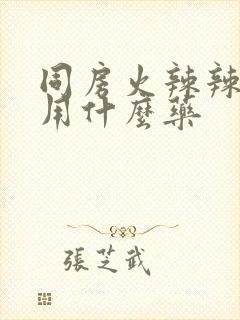 同房火辣辣
用什麼藥
張芝武